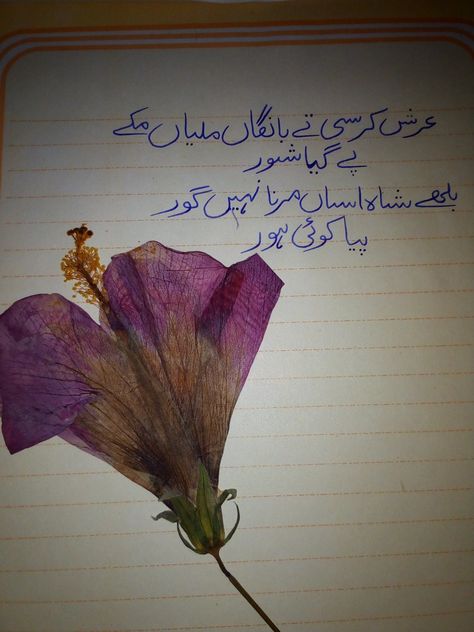 عرش کرسی تے بانگاں ملیاں مکے
پے گیا شور
بلھے شاہ اساں مرنا نہیں گور
پیا کوئی ہور